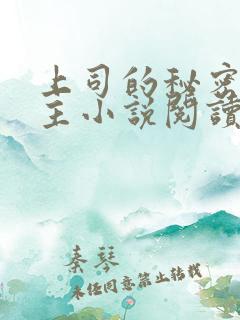 上司的秘密
主小説閱讀
秦琴
未任同意禁止转载